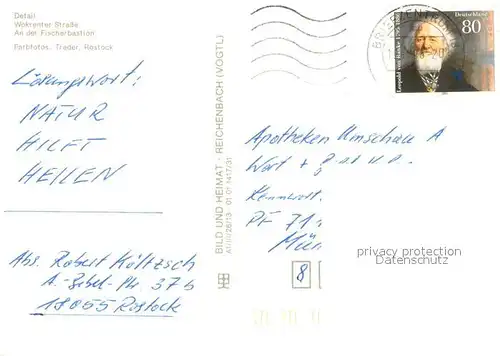 Detail
Wokrenter Straße
An der Fischerbastion
Farbfotos: Trader, Rostock
Lösungswort:
NATUR
HILFT
HEILEN
Abs. Robert Költzsch
A.-Bebel-Str. 37b
18055 Rostock
BILD UND HEIMAT · REICHENBACH (VOGTL)
01 01 1417/31
BRIEFZENTRUM
Deutschland
80
Leopold von Ranke 1795-1886
Apotheken Umschau A
Wort +
Kennwort:
PF 71
Mün
8
privacy protection
Datenschutz